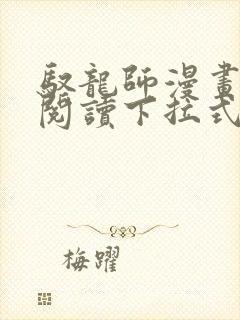 馭龍師漫畫
閱讀下拉式
梅躍